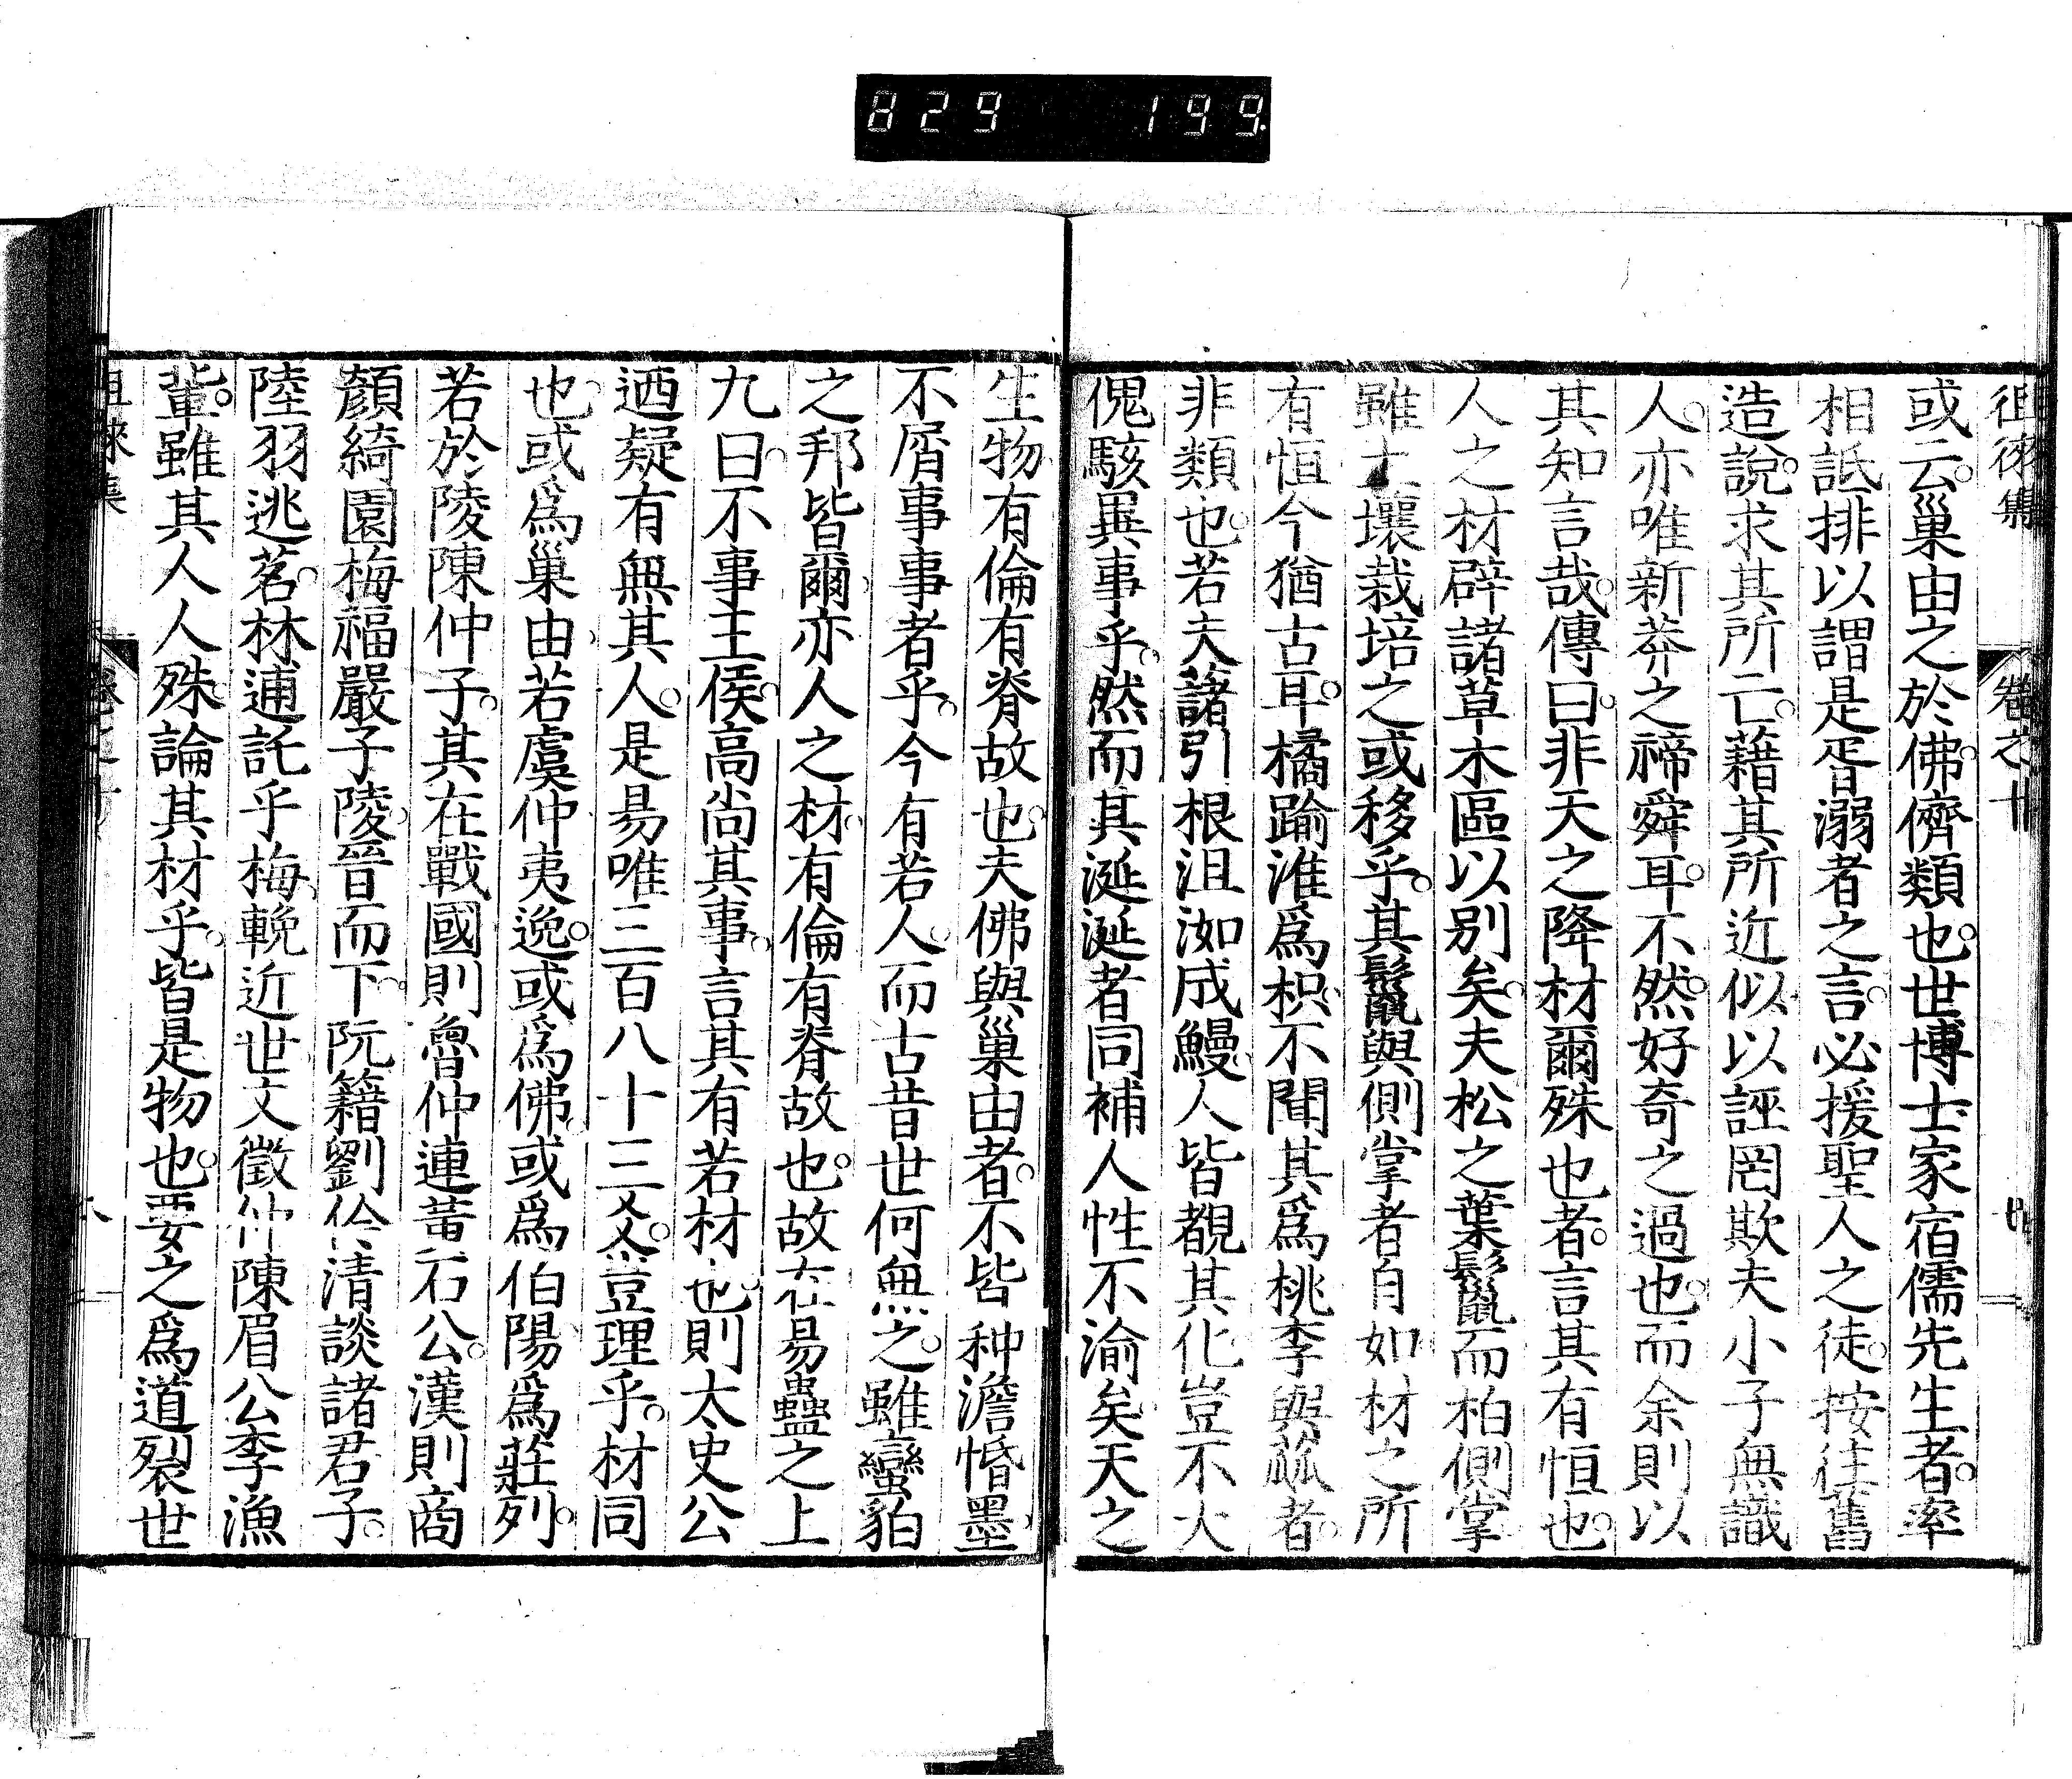 829 199.
徂徠集 卷之十
或云。巢由之於佛。儕類也。世博士家宿儒先生者。率
相詆排以謂是胥溺者之言。必援聖人之徒。按往舊
造說。求其所亡。藉其所近似以誣罔欺夫小子無識
人。亦唯新莽之禘舜耳。不然。好奇之過也。而余則以
其知言哉。傳曰。非天之降材爾殊也者。言其有恒也。
人之材辟諸草木區以別矣。夫松之葉鬣而柏側掌
雖土壤栽培之或移乎。其鬣與側掌者自如材之所
有恒今猶古耳。橘踰淮爲枳。不聞其爲桃李與菰者。
非類也。若夫藷引根沮洳成鰻。人皆覩其化豈不大
傀駭異事乎。然而其涎涎者同補人性不渝矣天之
生物有倫有脊故也。夫佛與巢由者。不皆种澹惛墨
不屑事事者乎。今有若人。而古昔世何無之。雖蠻貊
之邦皆爾。亦人之材。有倫有脊故也。故在易蠱之上
九曰。不事王侯。高尚其事。言其有若材也。則太史公
迺疑有無其人。是易唯三百八十三爻。豈理乎。材同
也。或爲巢由若虞仲夷逸。或爲佛。或爲伯陽爲莊列。
若於陵陳仲子。其在戰國則魯仲連黃石公。漢則商
顏綺園梅福嚴子陵。晉而下。阮籍劉伶清談諸君子。
陸羽逃茗。林逋託乎梅。輓近世文徵仲陳眉公李漁
輩。雖其人人殊。論其材乎。皆是物也。要之爲道裂世